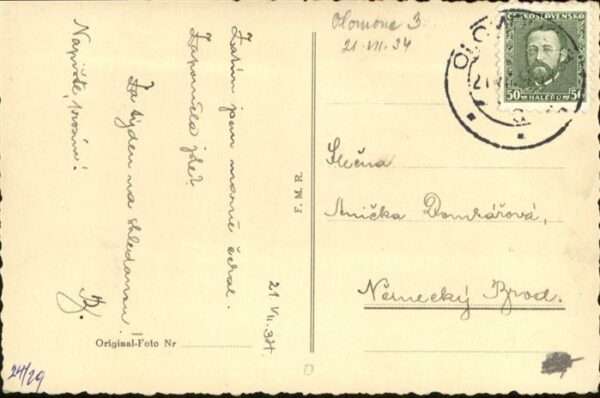 21 VII. 34.
Zatím jsem marně čekal.
Zapomněla jste?
Za týden na shledanou!
Napište, prosím!
B.
Original-Foto Nr
24/29
F. M. R.
Olomouc 3
21. VII. 34
ČESKOSLOVENSKO
50 HALÉŘŮ 50
OLO
21
3
Slečna
Anička Domkářová,
Německý Brod.